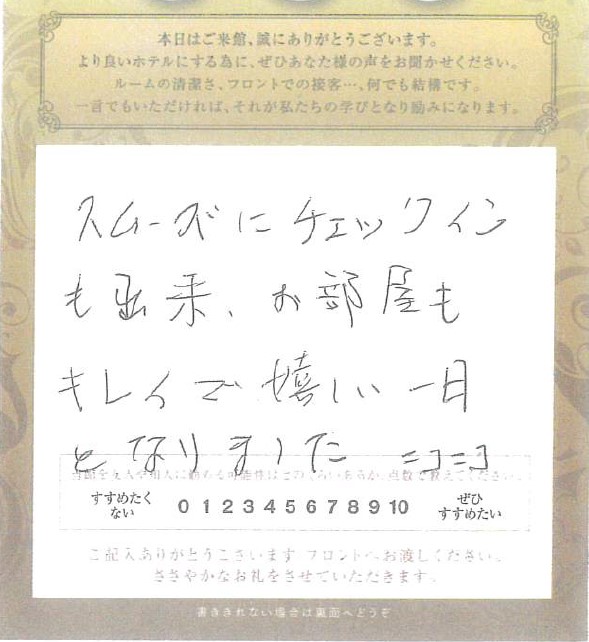 本日はご来館、誠にありがとうございます。
より良いホテルにする為に、ぜひあなた様の声をお聞かせください。
ルームの清潔さ、フロントでの接客…、何でも結構です。
一言でもいただければ、それが私たちの学びとなり励みになります。
スムーズにチェックイン
も出来、お部屋も
キレイで嬉しい一日
となりました ニコニコ
当館を友人や知人に勧める可能性はどのくらいあるか、点数で教えてください。
すすめたくない 0 1 2 3 4 5 6 7 8 9 10 ぜひすすめたい
ご記入ありがとうございます。フロントへお渡しください。
ささやかなお礼をさせていただきます。
書ききれない場合は裏面へどうぞ